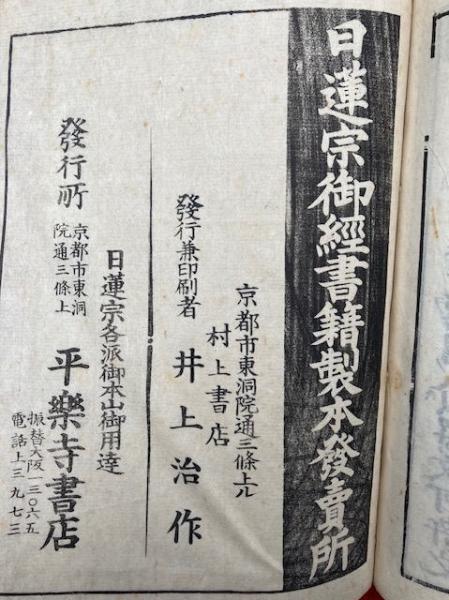 日蓮宗御經書籍製本發賣所
京都市東洞院通三條上ル
村上書店
發行兼印刷者 井上治作
日蓮宗各派御本山御用達
發行所 京都市東洞院通三條上 平樂寺書店
振替大阪一三〇六五
電話上三九七三